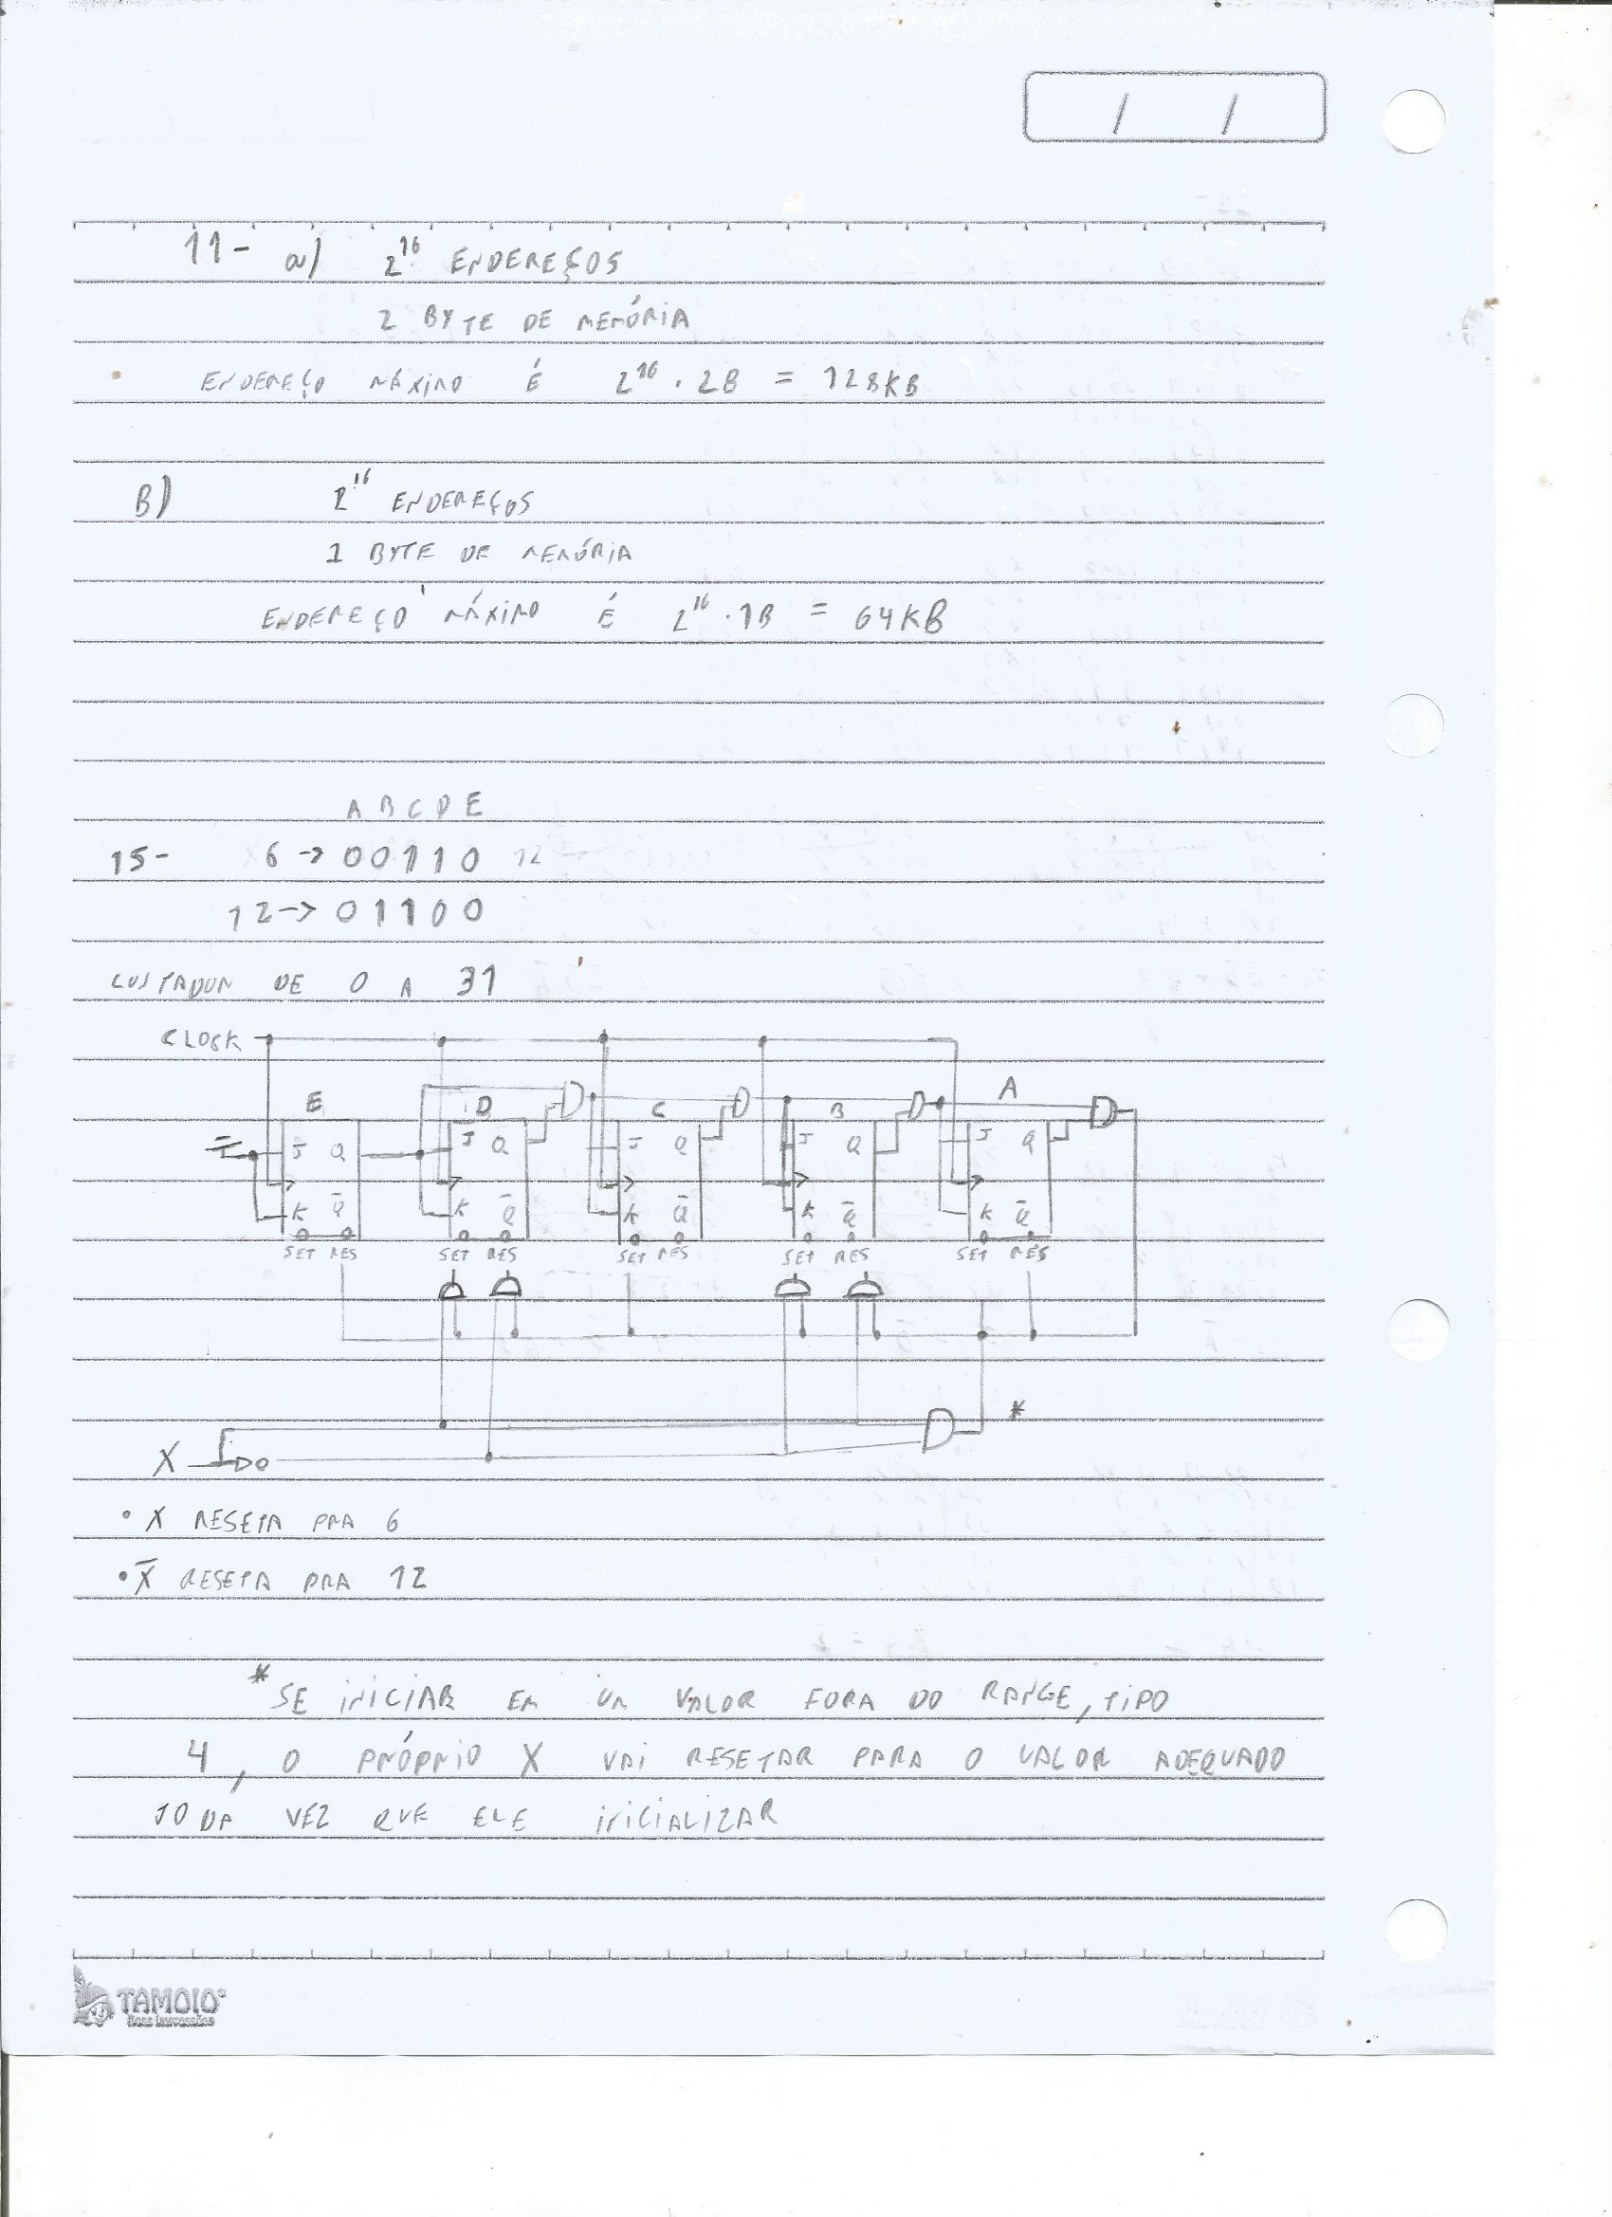 / /
11- a) 2^16 ENDEREÇOS
2 BYTE DE MEMÓRIA
ENDEREÇO MÁXIMO É 2^16 . 2B = 128KB
B) 2^16 ENDEREÇOS
1 BYTE DE MEMÓRIA
ENDEREÇO MÁXIMO É 2^16 . 1B = 64KB
A B C D E
15- 6 -> 00110 12
12 -> 01100
CONTADOR DE 0 A 31
CLOCK
E D C B A
J Q J Q J Q J Q J Q
K Q̅ K Q̅ K Q̅ K Q̅ K Q̅
SET RES SET RES SET RES SET RES SET RES
*
X
• X RESETA PRA 6
• X̅ RESETA PRA 12
* SE INICIAR EM UM VALOR FORA DO RANGE, TIPO
4, O PRÓPRIO X VAI RESETAR PARA O VALOR ADEQUADO
TODA VEZ QUE ELE INICIALIZAR
TAMOIO